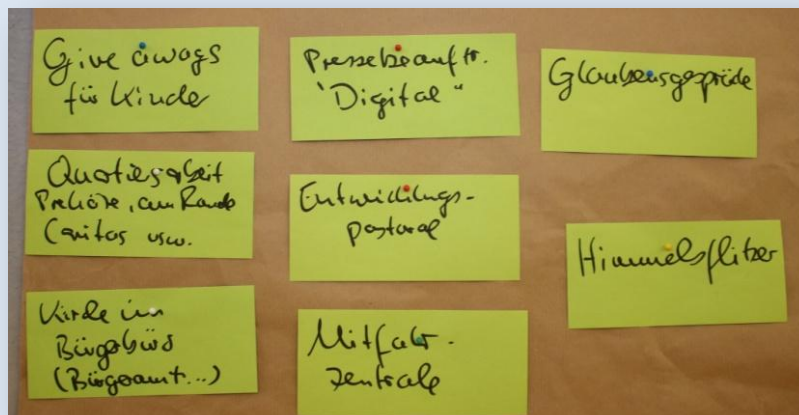 Give aways
für Kinder
Quartiersarbeit
Prekäre, am Rande
Caritas usw.
Kirche im
Bürgerbüro
(Bürgeramt...)
Pressebeauftr.
"Digital"
Entwicklungs-
pastoral
Mitfahr-
zentrale
Glaubensgespräche
Himmelsflitzer